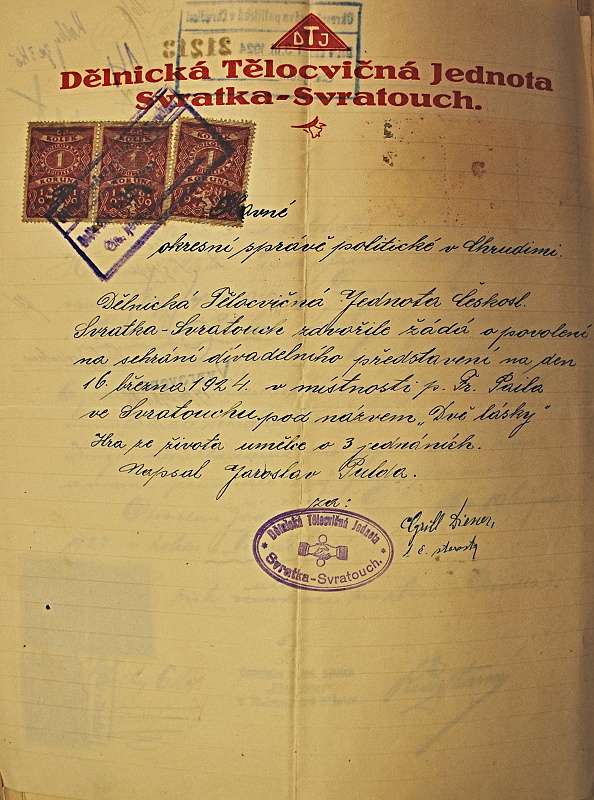 DTJ
Dělnická Tělocvičná Jednota
Svratka-Svratouch.
KOLEK
1
KORUNA
KOLEK
1
KORUNA
KOLEK
1
KORUNA
Slavné
okresní správě politické v Chrudimi.
Dělnická Tělocvičná Jednota Českosl.
Svratka-Svratouch zdvořile žádá o povolení
na sehrání divadelního představení na den
16. března 1924. v místnosti p. Fr. Paila
ve Svratouchu pod názvem „Dvě lásky"
Hra ze života umělce o 3 jednáních.
Napsal Jaroslav Pulda.
za:
Dělnická Tělocvičná Jednota
Svratka-Svratouch.
Cyrill Diener,
t. č. starosta